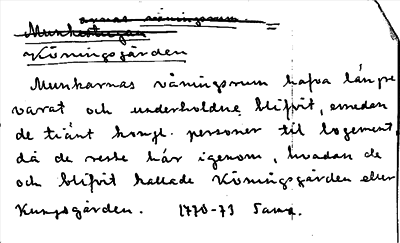 annas våningsrum
Munkestugan
Könningsgården
Munkarnas våningsrum hafva längre
varat och underholdne blifvit, emedan
de tiänt kongl. personer til logement,
då de reste här igenom, hvadan de
och blifvit kallade Könningsgården eller
Kungsgården. 1770-73 Saml.